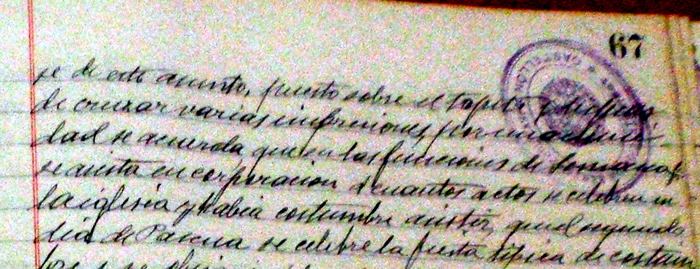 67
se de este asunto, puesto sobre el tapete y después
de cruzar varias impresiones por unanimi
dad se acuerda que en las funciones de Semana S.
se asista en corporación a cuantos actos se celebren en
la iglesia y había costumbre asistir, que el segundo
día de Pascua se celebre la fiesta típica de costum